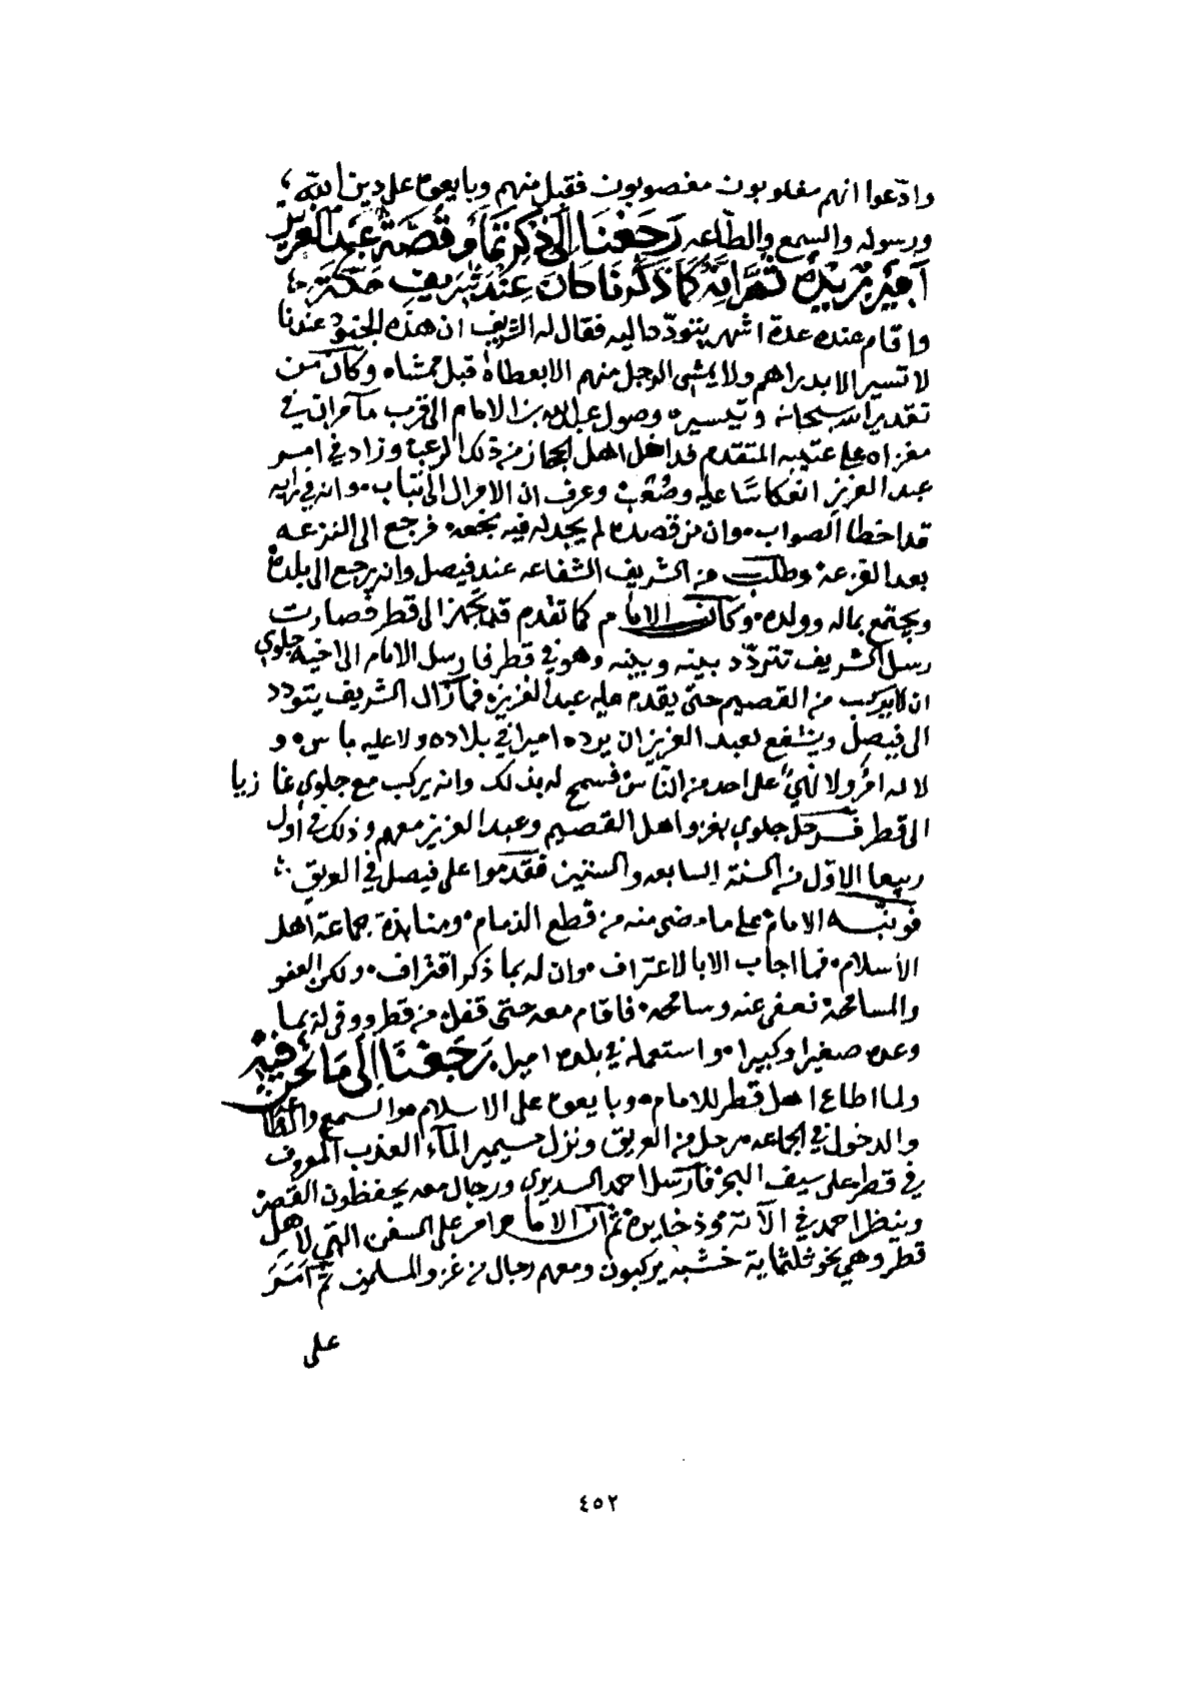 وادّعوا انهم مغلوبون مغصوبون فقبل منهم وبايعوه على دين الله
ورسوله والسمع والطاعه رَجَعْنَا إلى ذكر تمام قصّة عبد العزيز
أمير بريده ثم انه كما ذكرنا كان عند شريف مكة
واقام عنده عدة اشهر يتودّد اليه فقال له الشريف ان هذه الجنود عندنا
لا تسير الا بدراهم ولا يمشي الرجل منهم الا بعطاه قبل ممشاه وكان من
تقدير الله سبحانه وتيسيره وصول عبدالله بن الامام الى قرب مآمران في
مغزاه على عتيبه المتقدم فداخل اهل الحجاز من ذلك الرعب وزاد في امر
عبد العزيز انعكاسًا عليه وصُعب وعرف ان الامر ال الى تباب وانه في رايه
قد اخطا الصواب وان من قصده لم يجد له فيه نجعه فرجع الى النزعه
بعد القزعة وطلب من الشريف الشفاعه عند فيصل وانه يرجع الى بلده
ويجتمع بماله وولده وكان الامام كما تقدم قد تجهز الى قطر فصارت
رسل الشريف تتردّد بينه وبينه وهو في قطر فارسل الامام الى اخيه جلوي
ان لا يركب من القصيم حتى يقدم عليه عبد العزيز فمازال الشريف يتودد
الى فيصل ويشفع لعبد العزيز ان يرده اميرا في بلاده ولا عليه باس و
لا له امرٌ ولا نهيٌ على احد من النّاس فسمح له بذلك وانه يركب مع جلوي غازيا
الى قطر فرحل جلوي بغزو اهل القصيم وعبد العزيز معهم وذلك في أول
ربيع الاوّل من السنة السابعه والستين فقدموا على فيصل في العريق
فونّبه الامام على ما مضى منه من قطع الذمام ومنابذة جماعة أهل
الأسلام فما اجاب الا بالاعتراف وان له بما ذكر اقتراف ولكن العفو
والمسامحة نعفى عنه وسامحه فاقام معه حتى قفل من قطر ووفى له بما
وعده صغيرا وكبيرا واستعمله في بلده اميرا رَجَعْنَا إلى مَا نحن فيه
ولما اطاع اهل قطر للامام وبايعوه على الاسلام والسمع والطاعه
والدخول في الجماعه رحل من العريق ونزل حسيمير المآء العذب المعروف
في قطر على سيف البحر فأرسل احمد السديري ورجال معه يحفظون القصر
وينظر احمد في الآته وذخايره ثم ان الامام امر على السفن التي لاهل
قطر وهي نحو ثلثماية خشبه يركبون ومعهم رجال من غزو المسلمين ثم أمَرَ
على
٤٥٢